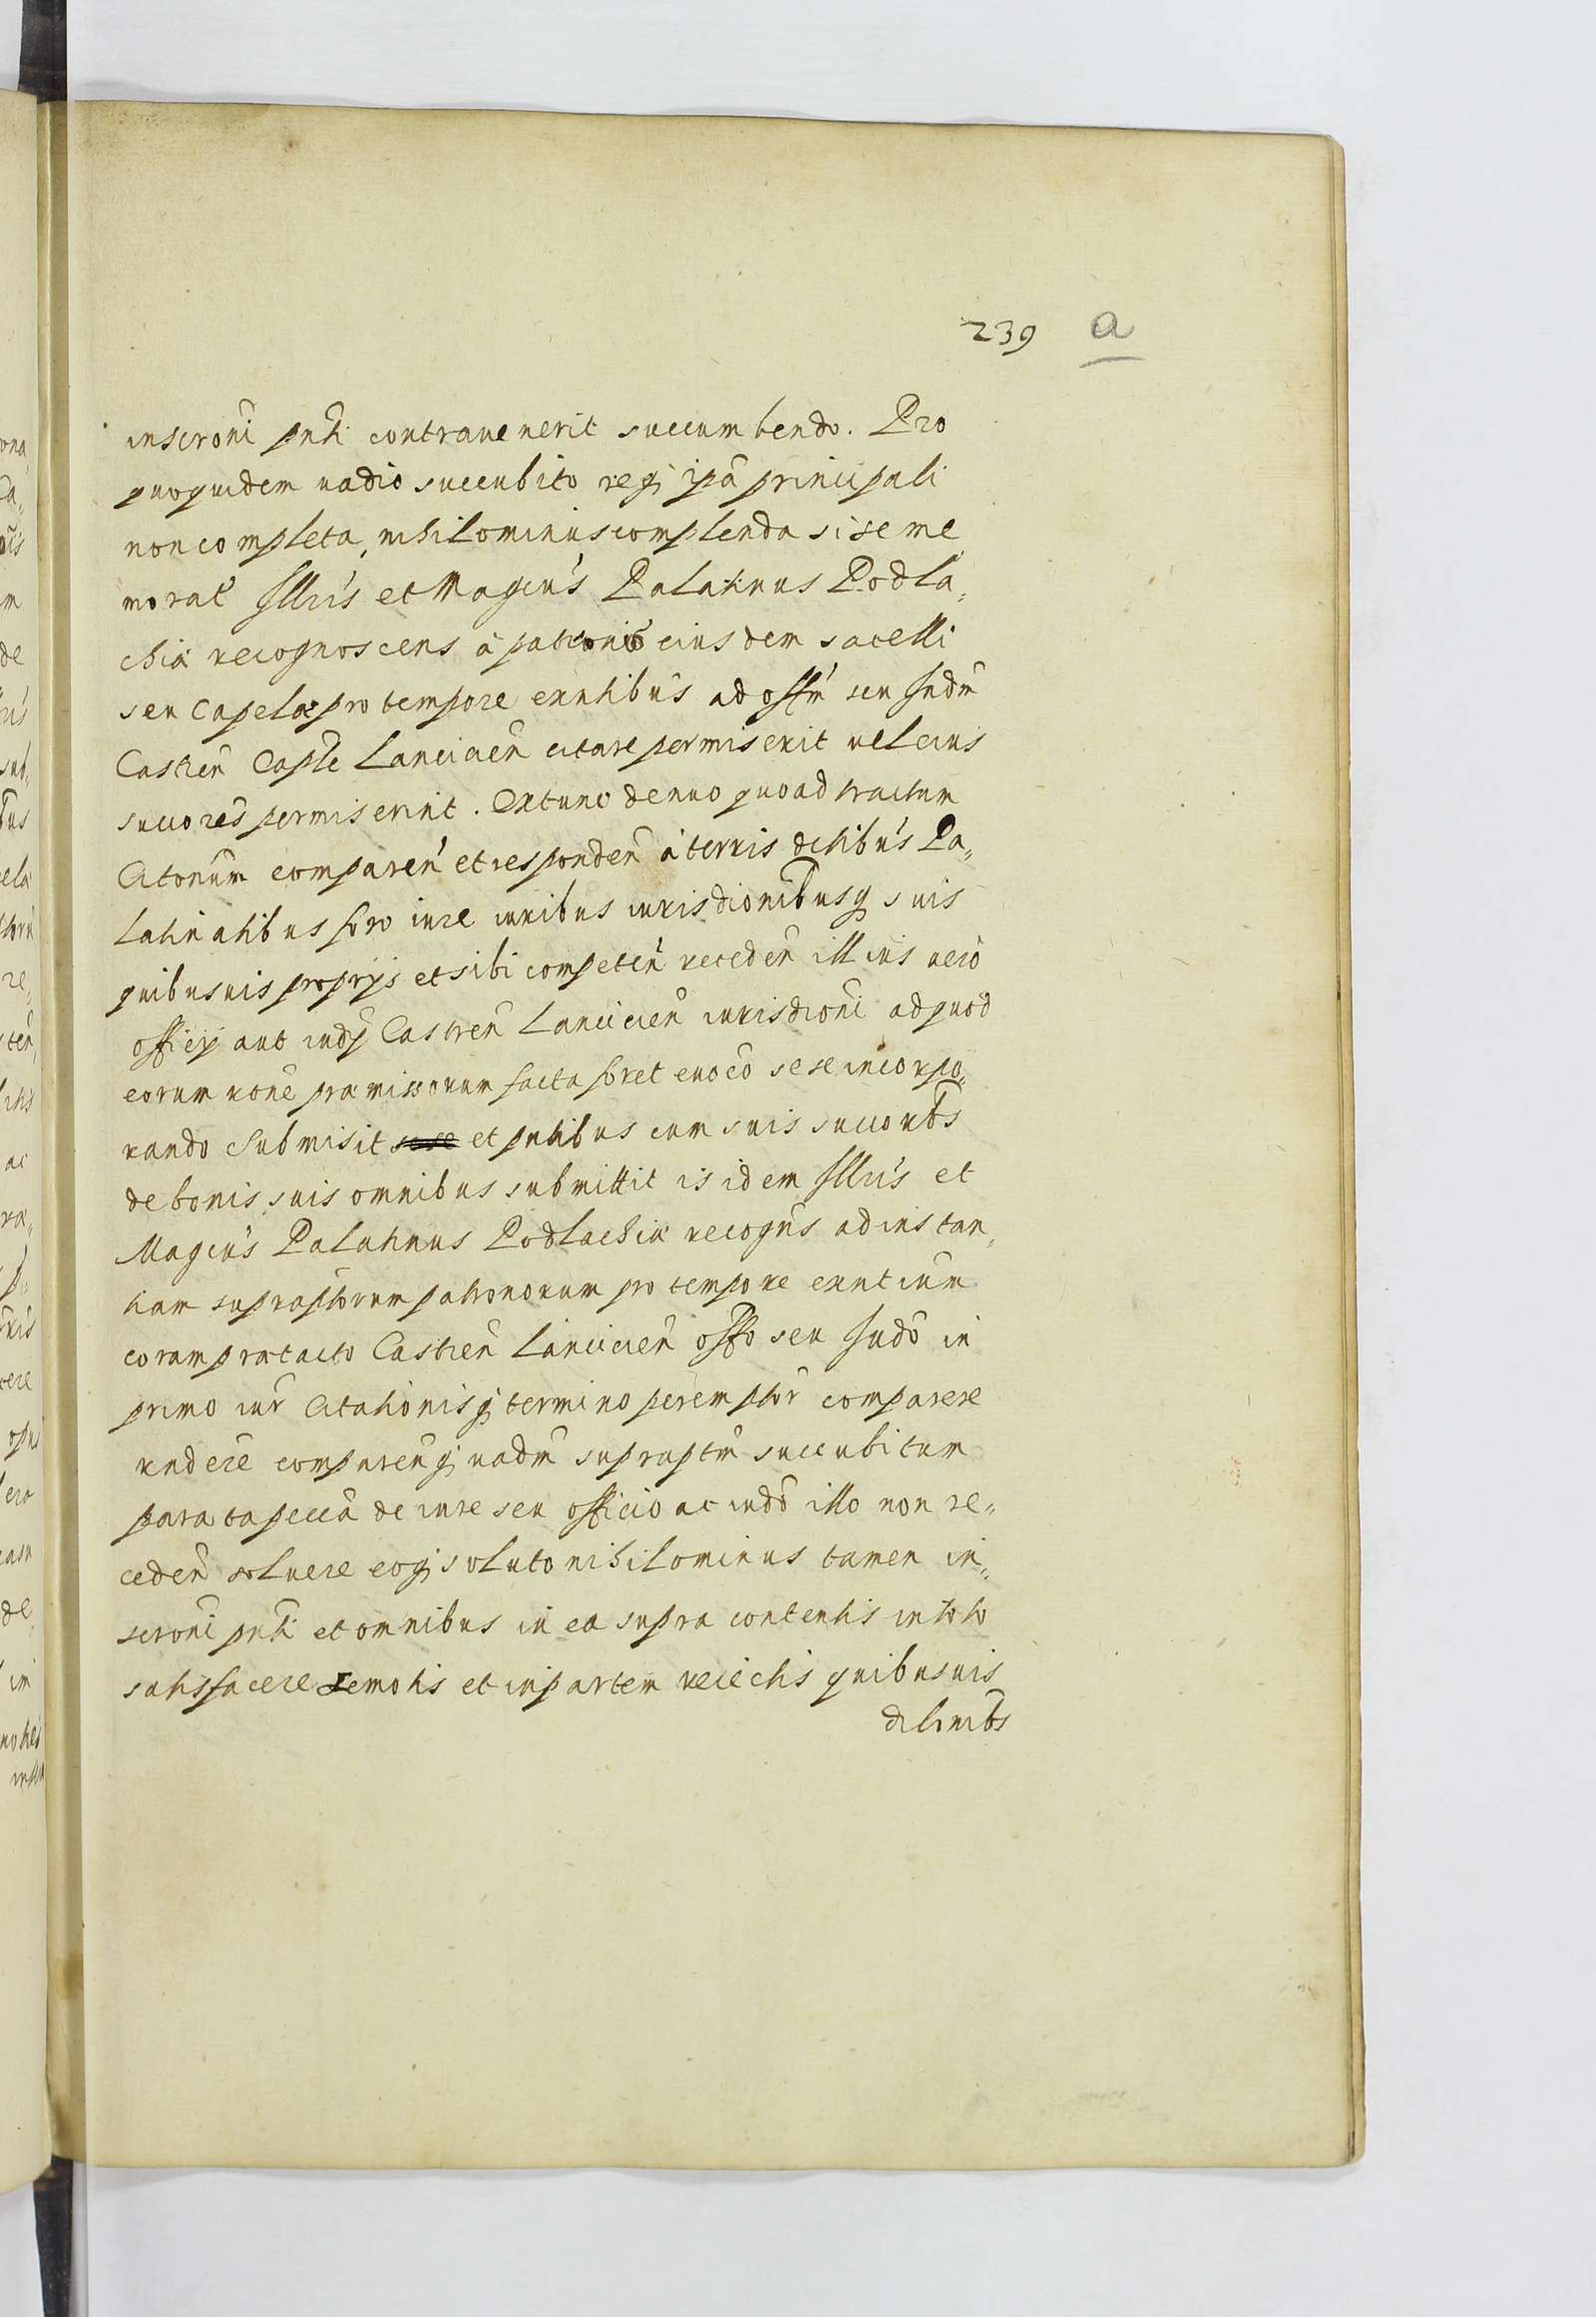 239 a
inscroni pnti contravenerit succumbendo. Pro
quoquidem vadio succubito reqȝ ipa principali
non completa, nihilominus complenda si se me
morat Illris et Magcus Palatinus Podla„
chiæ recognoscens a patronis eiusdem sacelli
seu Capelæ pro tempore exntibus ad offm seu Iudm
Castren Capte Lancicien citare permiserit vel eius
succores permiserint. Extunc denuo quoad tractum
Citonum comparen et responden a terris dictibus Pa„
latinatibus foro iure iuribus iurisdionibusqȝ suis
quibusvis proprijs et sibi competen receden illius vero
officij aut iudij Castren Lancicien iurisdioni ad quod
eorum rone præmissorum facta foret evoco sese incorpo„
rando submisit sese et pntibus cum suis succorbs
de bonis suis omnibus submittit is idem Illris et
Magcus Palatinus Podlachiæ recogns ad instan„
tiam supraptorum patronorum pro tempore exntium
coram prætacto Castren Lancicien offo seu Iudo in
primo iur Citationisqȝ termino peremptor comparere
rndere comparenqȝ vadm supraptm succubitum
parata pecca de iure seu officio ac iudo illo non re„
ceden solvere eoqȝ soluto nihilominus tamen in„
scroni pnti et omnibus in ea supra contentis in toto
satisfacere remotis et in partem reiectis quibusvis
dilonibs